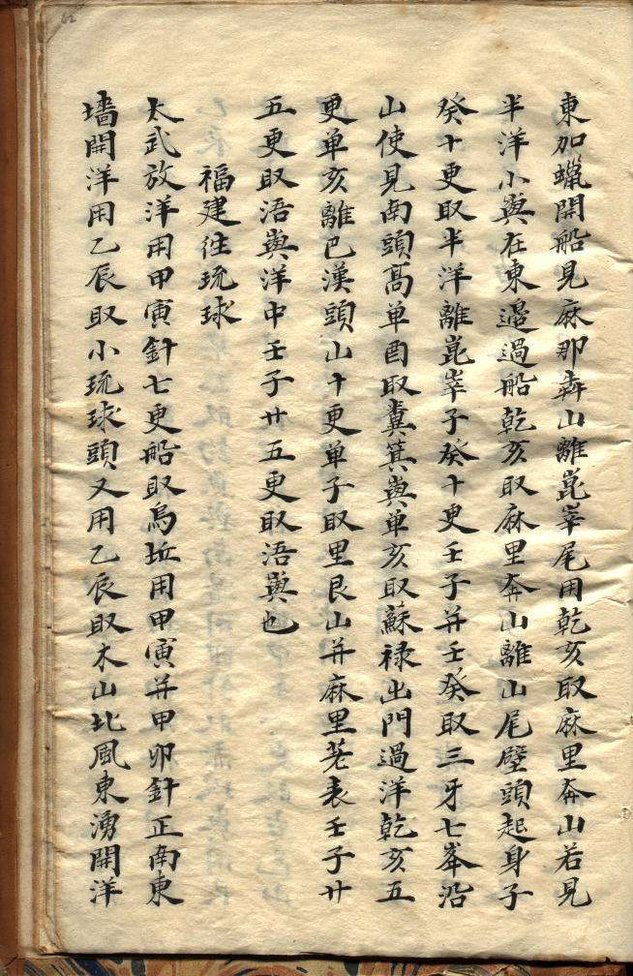 東加蠟開船見麻那犇山離崑峯尾用乾亥取麻里奔山若見
半洋小嶼在東邊過船乾亥取麻里奔山離山尾壁頭起身子
癸十更取半洋離崑峯子癸十更壬子并壬癸取三牙七峯沿
山使見南頭髙单酉取糞箕嶼单亥取蘇禄出門過洋乾亥五
更单亥離巴漢頭山十更单子取里艮山并麻里荖表壬子廿
五更取浯嶼洋中壬子廿五更取浯嶼也
福建往琉球
太武放洋用甲寅針七更船取烏坵用甲寅并甲卯針正南東
墻開洋用乙辰取小琉球頭又用乙辰取木山北風東湧開洋
62